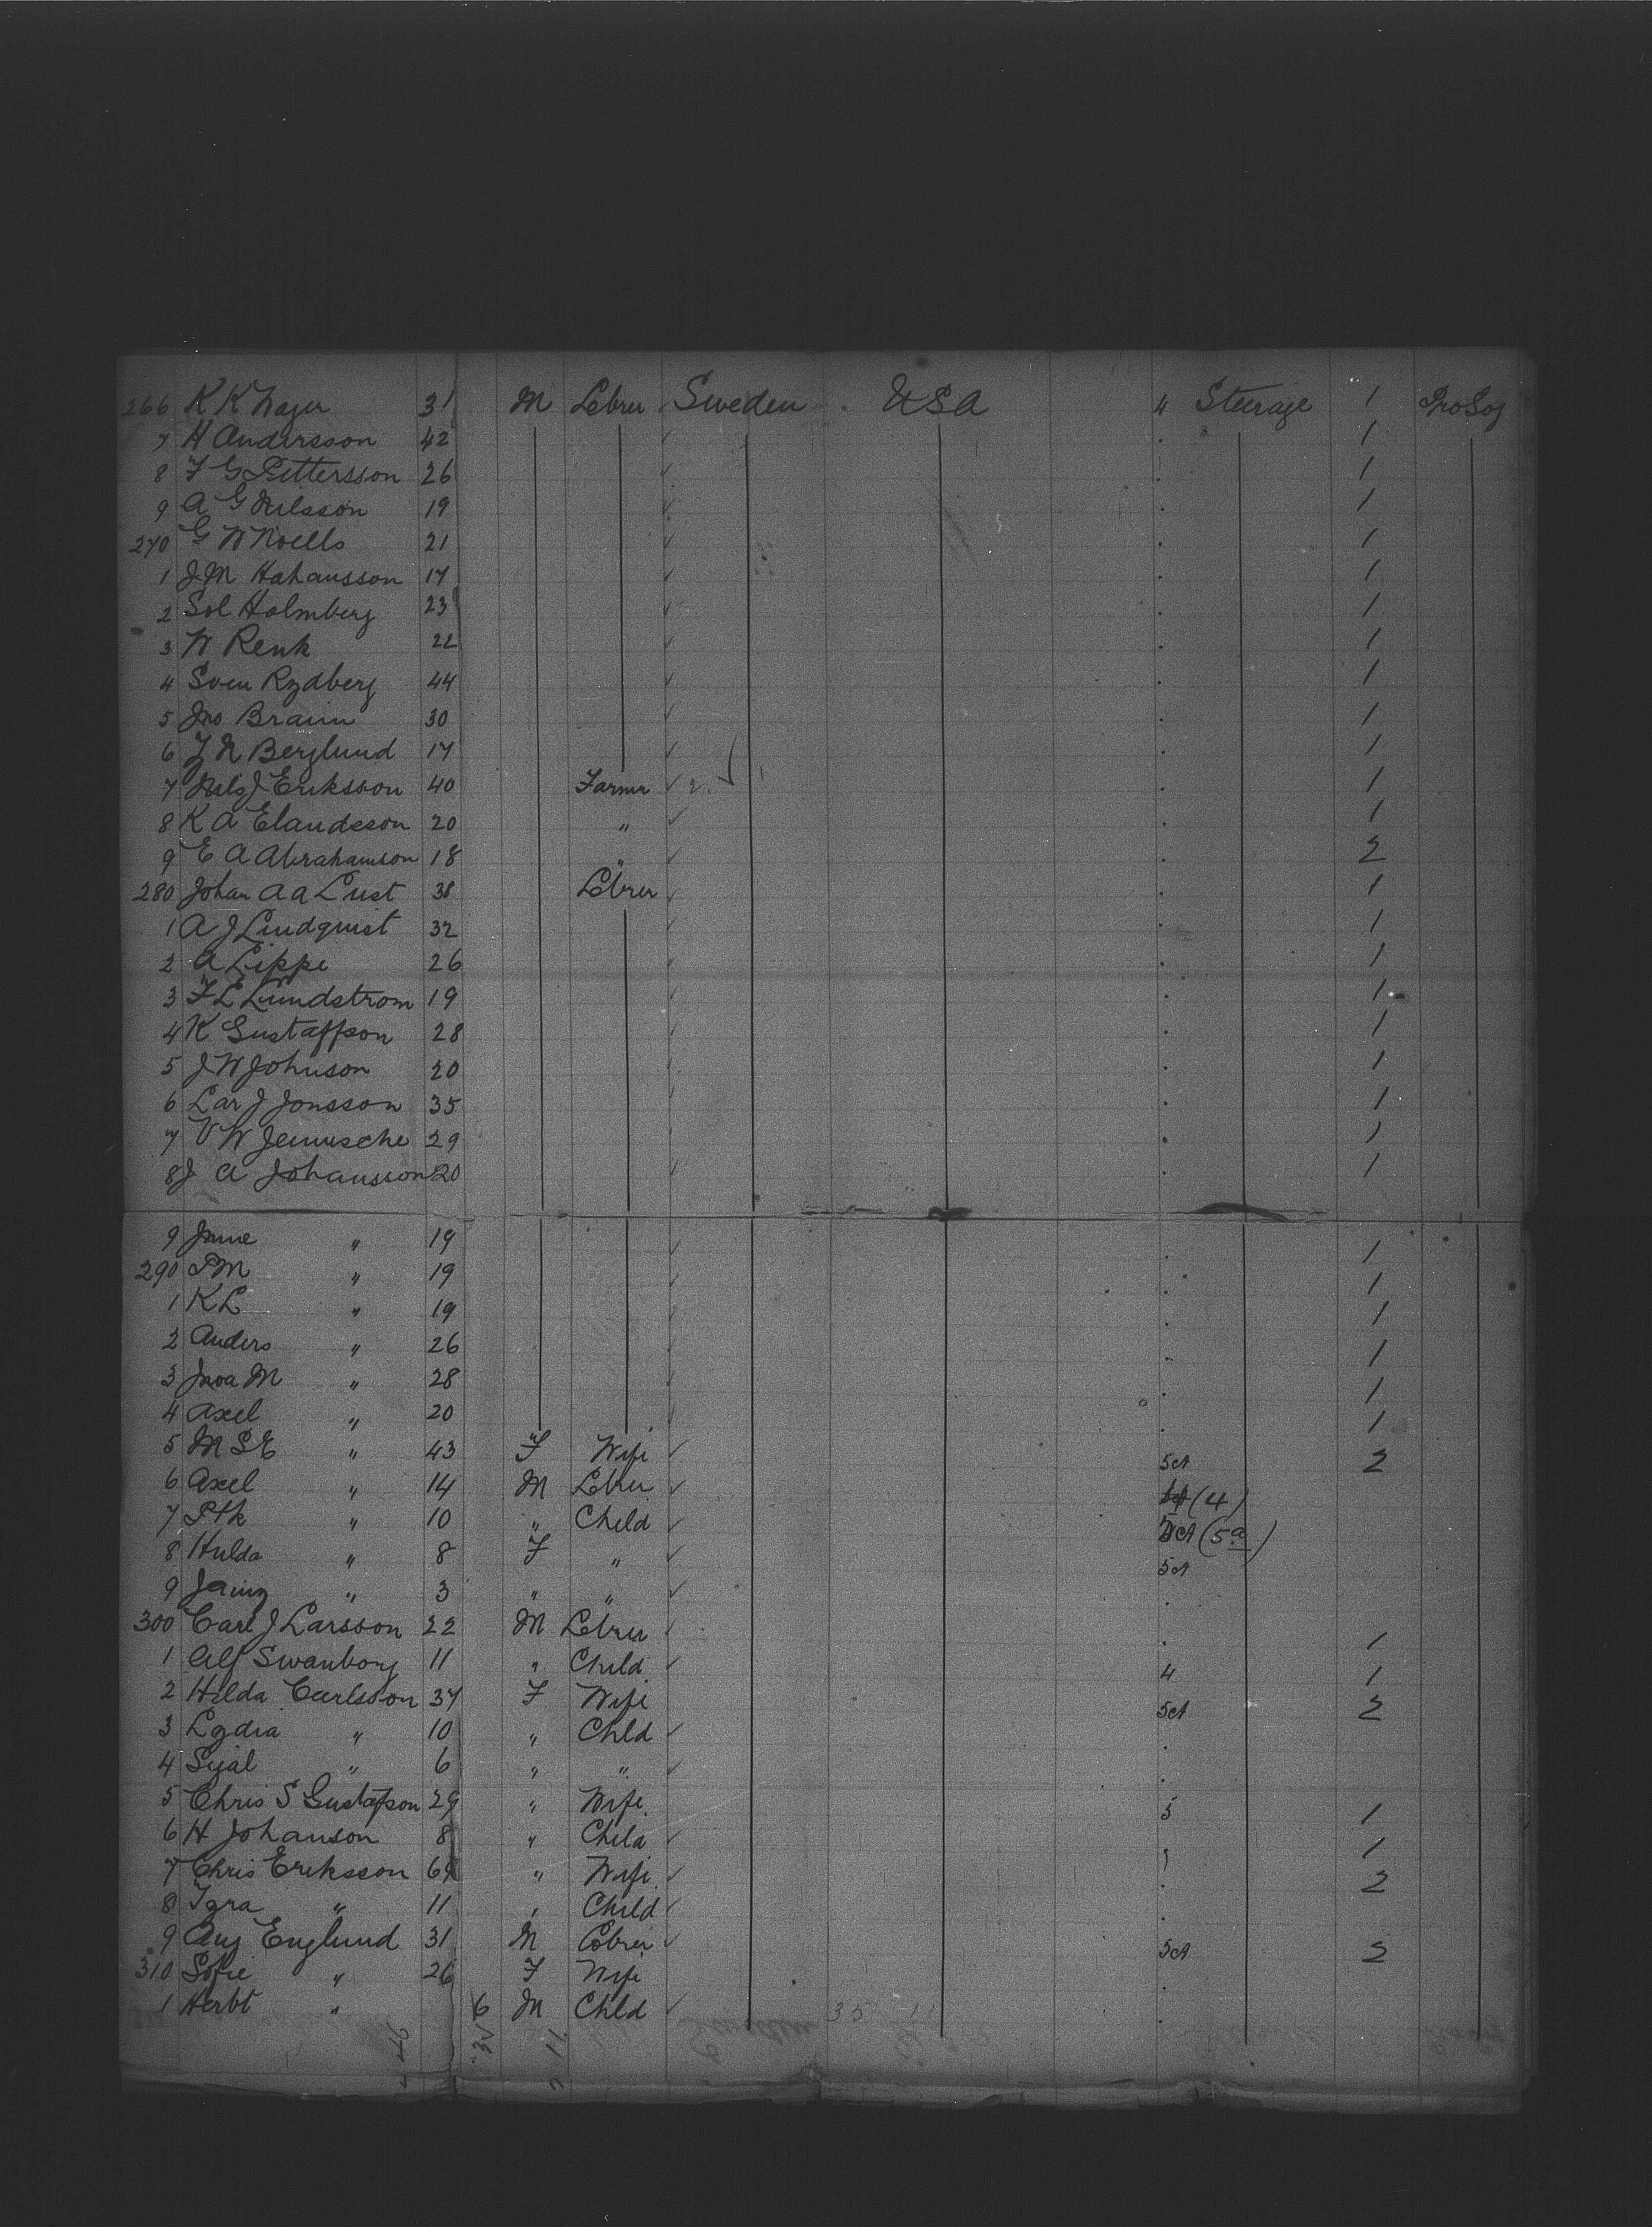 266 K K Wager 31 M Lebrer Sweden USA 4 Steerage 1 Pro Soj
7 H Andersson 42 1
8 F G Pettersson 26 1
9 A G Nilsson 19 1
270 G W Noells 21 1
1 J M Hahansson 17 1
2 Sol Holmberg 23 1
3 W Renk 22 1
4 Sven Rydberg 44 1
5 Jno Braun 30 1
6 J N Berglund 17 1
7 Nils J Eriksson 40 Farmer 1
8 K A Elandsson 20 " 1
9 E A Abrahamson 18 " 2
280 Johan A A Lust 38 Lebrer 1
1 A J Lindquist 32 1
2 A Lippe 26 1
3 F E Lundstrom 19 1
4 K Gustaffson 28 1
5 J W Johnson 20 1
6 Lar J Jonsson 35 1
7 V W 29 1
8 J A Johansson 20 1
9 " 19 1
290 P M " 19 1
1 K L " 19 1
2 Anders " 26 1
3 M " 28 1
4 Axel " 20 1
5 M S E " 43 F Wife 5A 2
6 Axel " 14 M Lebrer (4)
7 " 10 " Child (5a)
8 Hulda " 8 F " 5A
9 " 3 " "
300 Carl J Larsson 22 M Lebrer 1
1 Alf Swanborg 11 " Child 4 1
2 Hilda Carlsson 37 F Wife 5A 2
3 Lydia " 10 " Chld
4 " 6 " "
5 Chris S Gustafson 29 " Wife 5 1
6 H Johanson 8 " Child 1
7 Chris Eriksson " Wife 2
8 " 11 " Child
9 Aug Englund 31 M Lebrer 5A 2
310 Sofie " 26 F Wife
1 Herbt " 6 M Chld 35 11